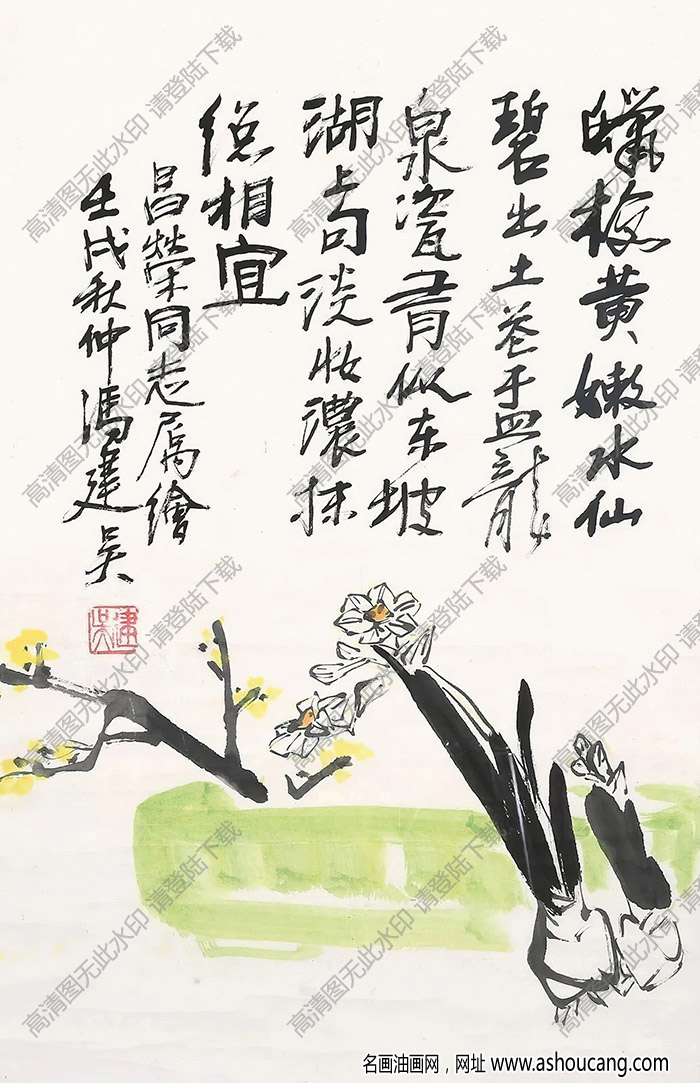 蠟梅黄嫩水仙
碧出土花盂龍
泉瓷似东坡
湖上句淡妝濃抹
總相宜
昌榮同志属繪
壬戌秋仲馮建吴
建吴
高清图无此水印 请登陆下载
名画油画网，网址 www.ashoucang.com